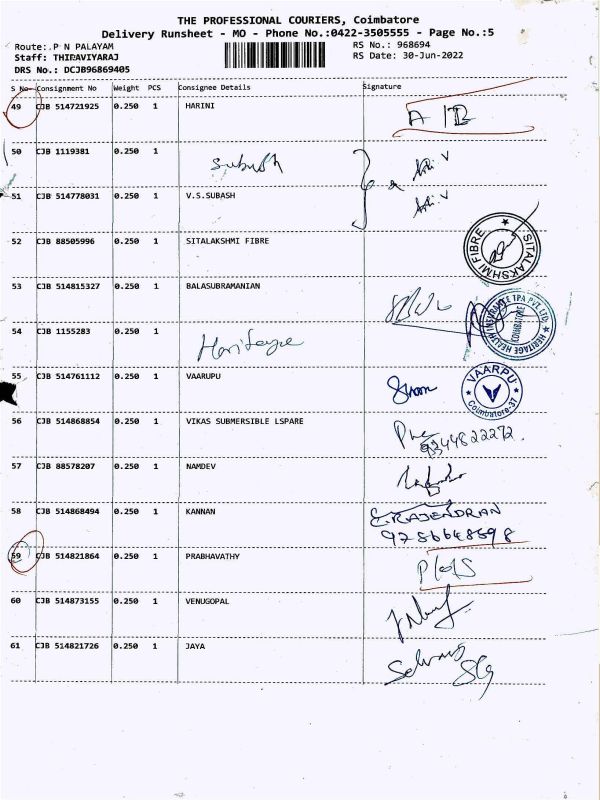 THE PROFESSIONAL COURIERS, Coimbatore
Delivery Runsheet - MO - Phone No.:0422-3505555 - Page No.:5
Route: P N PALAYAM RS No.: 968694
Staff: THIRAVIYARAJ RS Date: 30-Jun-2022
DRS No.: DCJB96869405
S No Consignment No Weight PCS Consignee Details Signature
49 CJB 514721925 0.250 1 HARINI
50 CJB 1119381 0.250 1 Subash
51 CJB 514778031 0.250 1 V.S.SUBASH
52 CJB 88505996 0.250 1 SITALAKSHMI FIBRE SITALAKSHMI FIBRE
53 CJB 514815327 0.250 1 BALASUBRAMANIAN
54 CJB 1155283 0.250 1 HERITAGE HEALTH INSURANCE TPA PVT. LTD. COIMBATORE
55 CJB 514761112 0.250 1 VAARUPU VAARPU Coimbatore-37
56 CJB 514868854 0.250 1 VIKAS SUBMERSIBLE LSPARE 9344822272.
57 CJB 88578207 0.250 1 NAMDEV
58 CJB 514868494 0.250 1 KANNAN C.RAJENDRAN
59 CJB 514821864 0.250 1 PRABHAVATHY
60 CJB 514873155 0.250 1 VENUGOPAL
61 CJB 514821726 0.250 1 JAYA